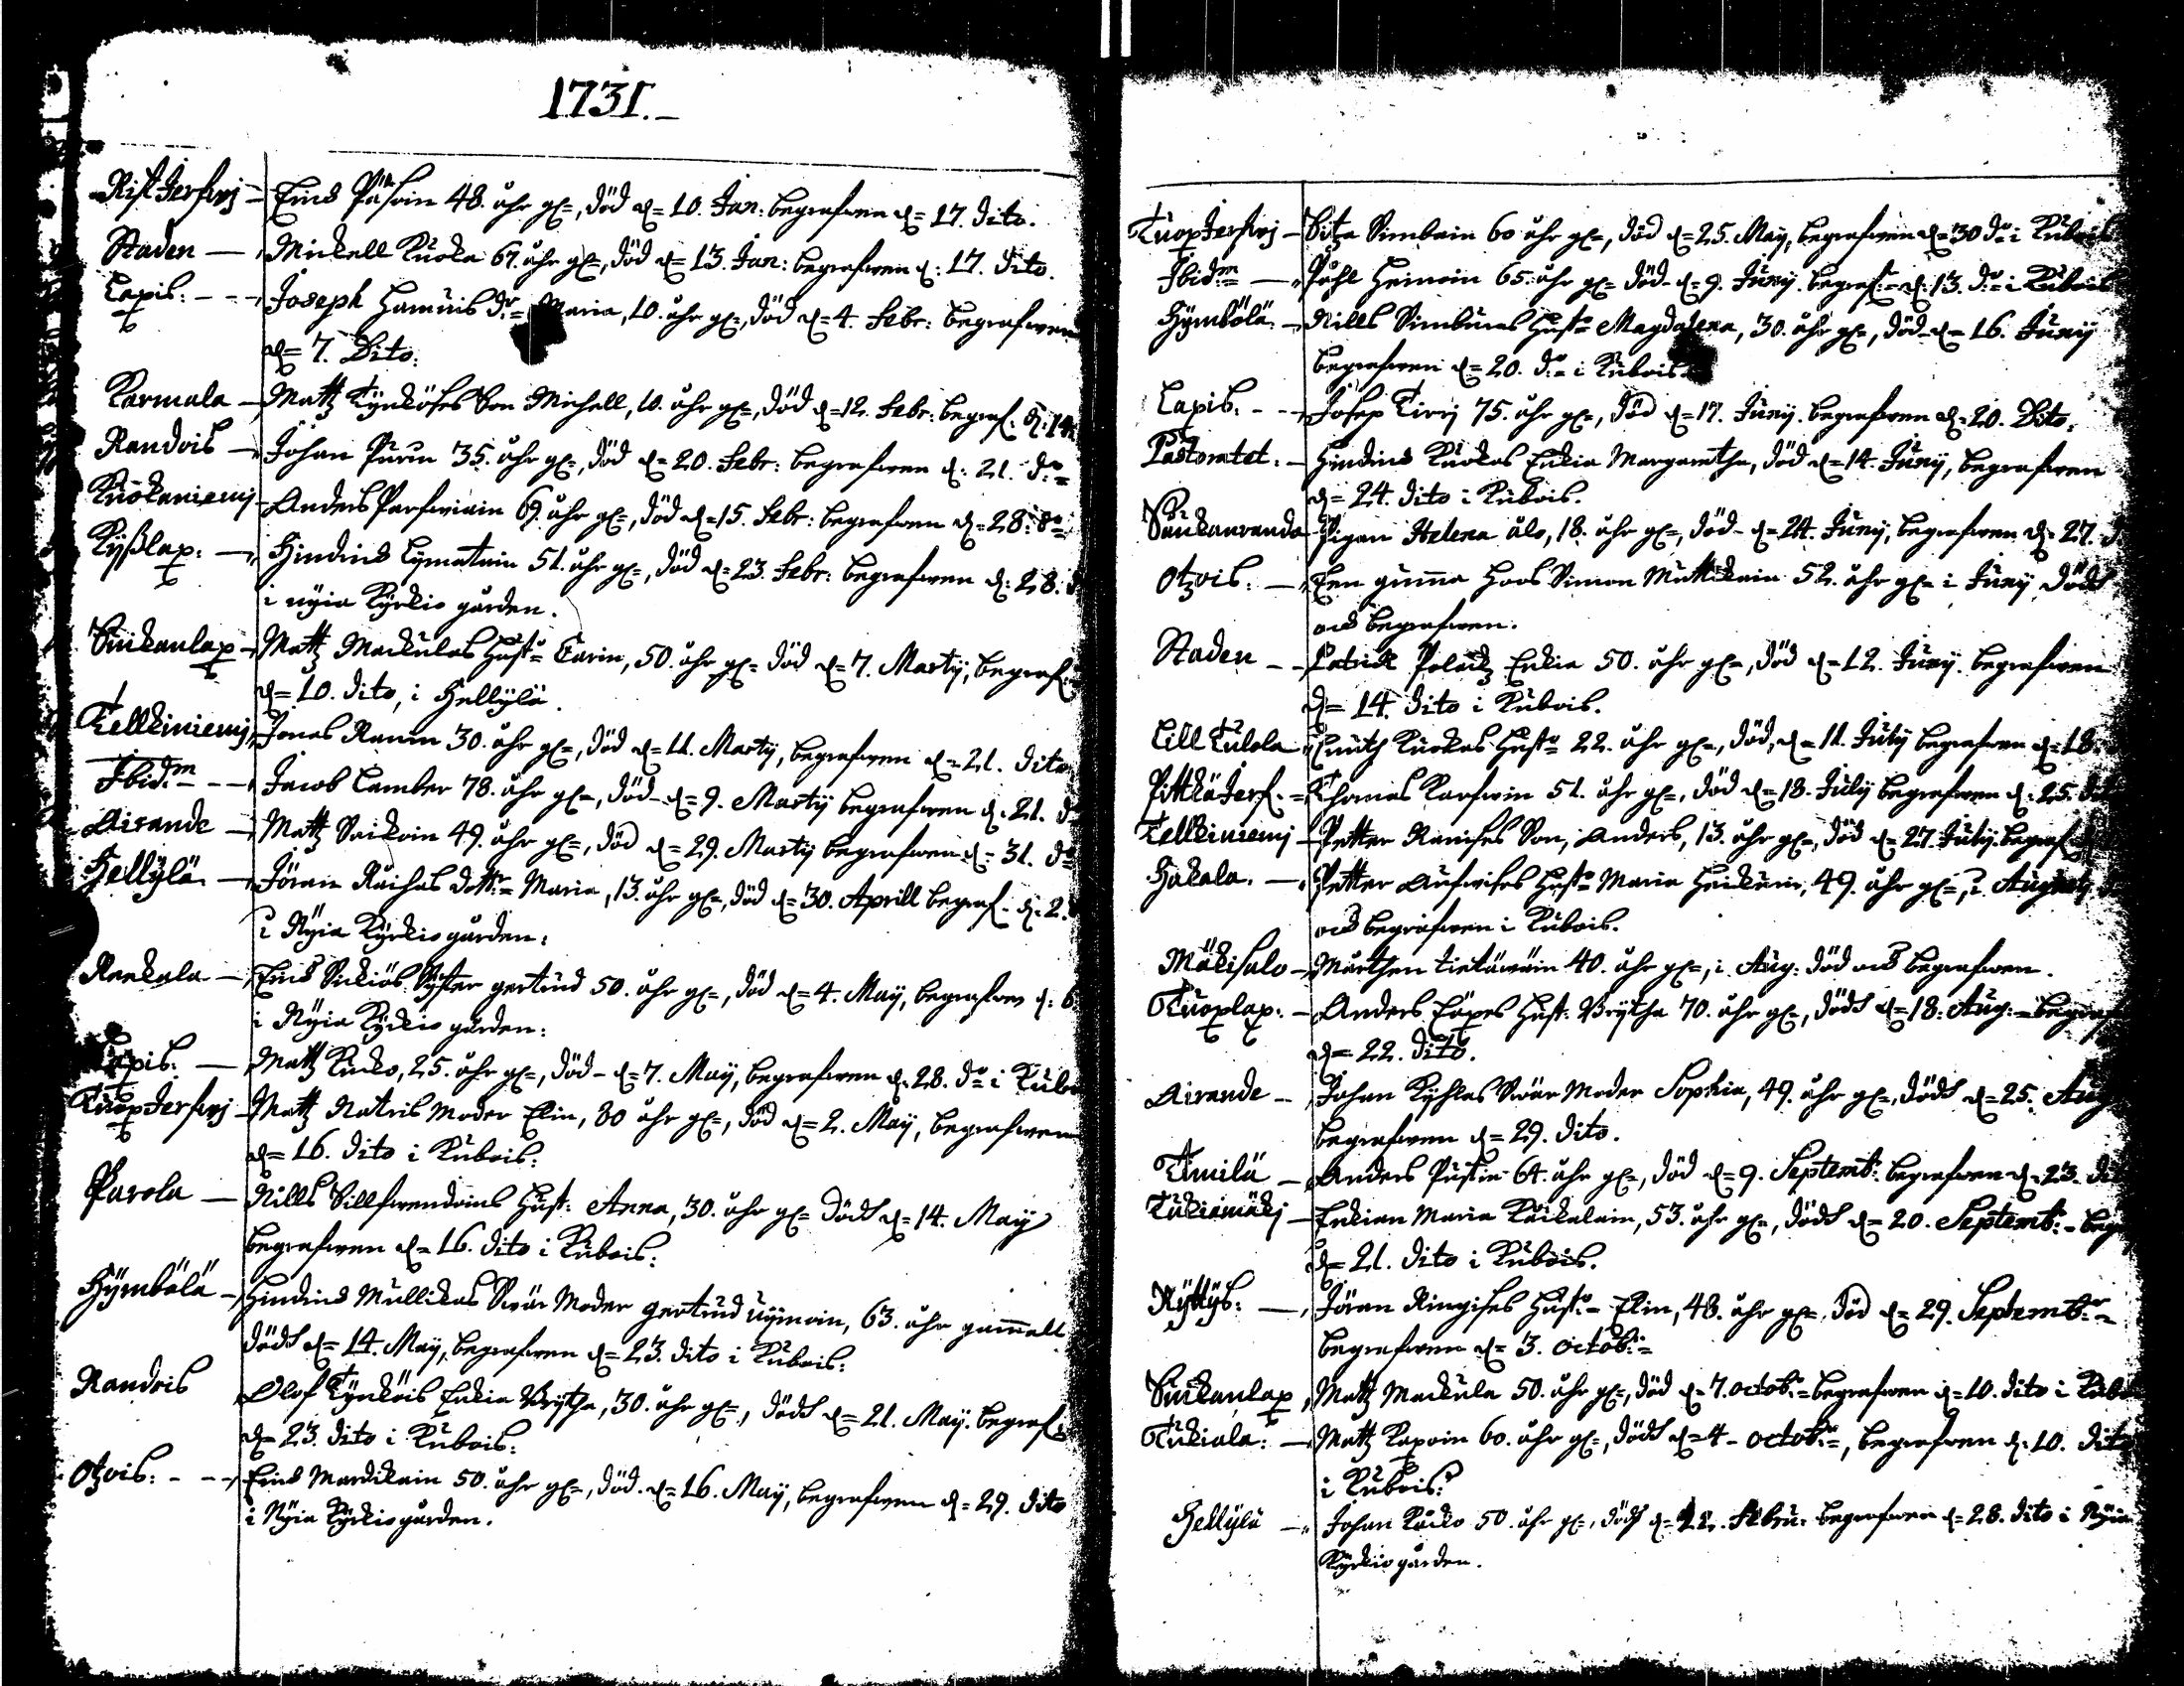 1731.
Rist Jerfwj - Erich Päkoin 48. åhr gl=, död d= 10. Jan: begrafwen d= 17. dito.
Staden - Mickell Kuoka 67. åhr gl=, död d= 13. Jan: begrafwen d: 17. dito.
Lapis: - Joseph Hamuis dr= Maria, 10. åhr gl=, död d= 4. Febr: begrafwen
d= 7. Dito:
Karmala - Matz Tynköses Son Michell, 10. åhr gl=, död d= 12. Febr: begraf. d: 14.
Randois - Johan Puruu 35. åhr gl=, död d= 20. Febr: begrafwen d: 21. do=
Kuokaniemj - Anders Parfwiain 69. åhr gl=, död d= 15. Febr: begrafwen d= 28: do
Kyßlax: - Hindrich Lymatain 51. åhr gl=, död d= 23. Febr: begrafwen d: 28.
i nyia Kyrkio gården.
Suikanlax - Matz Mackulas Hustu= Carin, 50. åhr gl= död d= 7. Martij, begraf:
d= 10. dito, i Hellylä.
Telkiniemj, Jonas Ranin 30. åhr gl=, död d= 11. Martij, begrafwen d= 21. dito
Ibidm - Jacob Camber 78. åhr gl=, död d= 9. Martij begrafwen d. 21. do
Airande - Matz Saikoin 49. åhr gl=, död d= 29. Martij begrafwen d= 31. do
Hellylä - Jöran Raihas dottr= Maria, 13. åhr gl=, död d= 30. Aprill begraf. d: 2.
i Nyia Kyrkio gården:
Reekala - Erich Sickiös Syster gertrud 50. åhr gl=, död d= 4. Maij, begrafwen d: 6
i Nyia Kyrkio gården:
Lapis: - Matz Kucko, 25. åhr gl=, död - d= 7. Maij, begrafwen d. 28. do i Kubo
Kuoxjerfwj - Matz Natris Moder Elin, 80 åhr gl=, död d= 2. Maij, begrafwen
d= 16. dito i Kubois:
Parola - Nills Sillfwendoins Hust: Anna, 30. åhr gl= dödh d= 14. Maij
begrafwen d= 16. dito i Kubois:
Hymbölä - Hindrich Mullikas Swär Moder gertrud uymoin, 63. åhr gammall
dödh d= 14. Maij, begrafwen d= 23. dito i Kubois:
Randois Olof Tynköis Enkia Brytha, 30. åhr gl=, dödh d= 21. Maij. begraf:
d= 23. dito i Kubois:
Otzois: - Erich Mardikain 50. åhr gl=, död. d= 16. Maij, begrafwen d= 29. dito
i Nyia Kyrkiogården.
Kuoxjerfwj - Sitza Simbain 60 åhr gl=, död d= 25. Maij, begrafwen d= 30 do= i Kubois
Ibidm= - Påhl Heinoin 65. åhr gl= död d= 9. Junij. begraf:= d: 13. do:= i Kubois
Hymbölä. - Nills Simbuins Hustu= Magdalena, 30. åhr gl=, död d= 16. Junij
begrafwen d= 20. do:= i Kubois.
Lapis: - Josep Kirrj 75. åhr gl=, död d= 17. Junij. begrafwen d= 20. Dito.
Pastoratet: - Hindrich Kuokas Enkia Margaretha, död d= 14. Junij, begrafwen
d= 24. dito i Kubois.
Suikanranda - Pigan Helena Ulo, 18. åhr gl=, död d= 24. Junij, begrafwen d. 27.
Otzois: - Een gumma hoos Simon Muttikain 52. åhr gl= i Junij dödh
och begrafwen.
Staden - Patrick Polacks Enkia 50. åhr gl=, död d= 12. Junij. begrafwen
d= 14. dito i Kubois.
Lill Tulola - Knuth Kuokas Hustu 22. åhr gl=, död, d= 11. July begrafwen d= 18.
Pittkäjerf. - Thomas Karfwin 51. åhr gl=, död d= 18. July begrafwen d. 25. dito
Telkiniemj - Petter Ranises Son, Anders, 13. åhr gl=, död d= 27. July. begraf
Hakala. - Petter Aufwises Hustu= Maria Heickuin, 49. åhr gl=, i Augusti
och begrafwen i Kubois.
Mäkisalo - Mårthen Tietäwäin 40. åhr gl=, i Aug: död och begrafwen.
Kuoplax: - Anders Löpes Hust: Brytha 70. åhr gl=, dödh d= 18. Aug:= begraf
d= 22. dito.
Airande - Johan Kyhlas Swär Moder Sophia, 49. åhr gl=, dödh d= 25. Aug
begrafwen d= 29. dito.
Timilä - Anders Pustin 64. åhr gl=, död d= 9. Septemb: begrafwen d= 23. di
Tukiamäkj - Enkian Maria Käikalain, 53. åhr gl=, dödh d= 20. Septemb:= begr
d= 21. dito i Kubois.
Nyttys: - Jöran Ringises Hustu= Elin, 48. åhr gl=, död d= 29. Septemb:=
begrafwen d= 3. octob:=
Suikanlax, Matz Mackula 50. åhr gl=, död d= 7. octob:= begrafwen d= 10. dito i Kubo
Tukiala: - Matz Kapoin 60. åhr gl=, dödh d= 4 - octob:=, begrafwen d. 10. dito
i Kubois:
Hellylä - Johan Kucko 50. åhr gl=, dödh d= 22. Febru: begrafwen d= 28. dito i Nyia
Kyrkiogården.